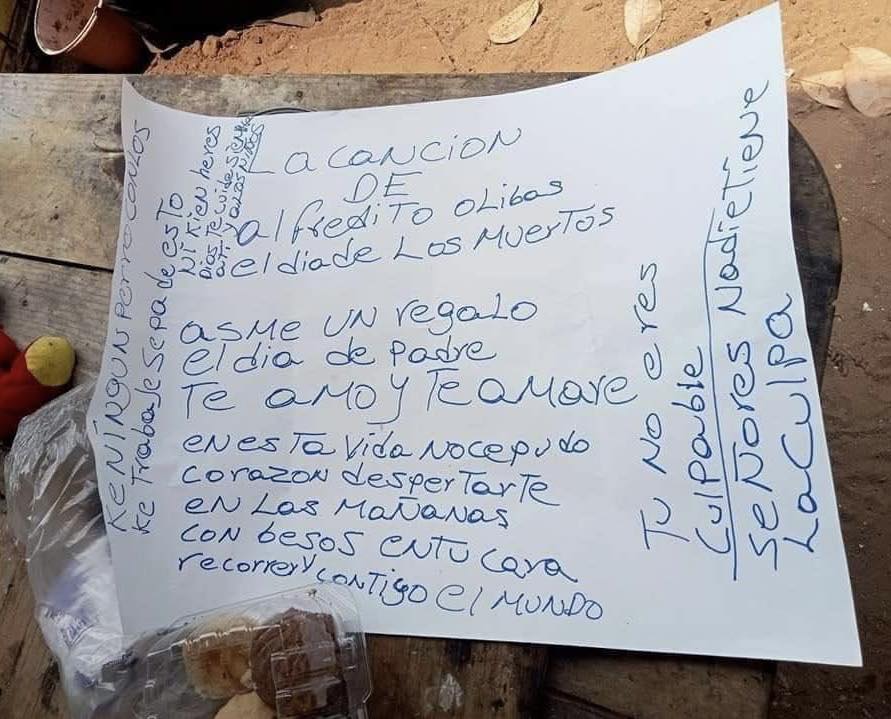 La cancion
DE
alfredito olibas
el dia de Los Muertos
asme UN regalo
el dia de padre
Te amo y Te amare
en esta vida nocepudo
corazon despertarte
en Las Mañanas
con besos entu cara
recorrer contigo el MUNDO
Ke NINGUN perro conlos
Ke Trabaje Sepa de esto
Ni Kien heres
Dios Te cuide siempre
ati y a Los Niños
Tu No eres
Culpable
señores Nadie Tiene
La Culpa